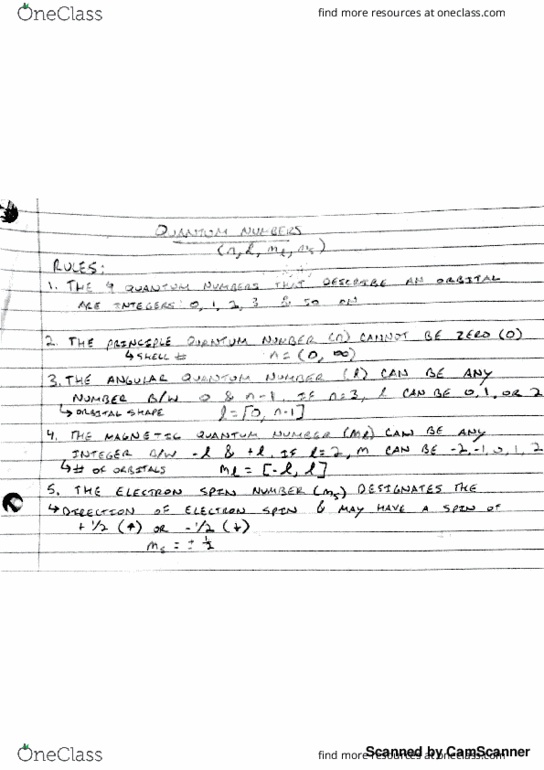 OneClass
find more resources at oneclass.com
QUANTUM NUMBERS
(n, l, ml, ms)
RULES:
1. THE 4 QUANTUM NUMBERS THAT DESCRIBE AN ORBITAL
ARE INTEGERS: 0, 1, 2, 3 & SO ON
2. THE PRINCIPLE QUANTUM NUMBER (n) CANNOT BE ZERO (0)
↳ SHELL # n = (0, ∞)
3. THE ANGULAR QUANTUM NUMBER (l) CAN BE ANY
NUMBER B/W 0 & n-1. IF n=3, l CAN BE 0, 1, OR 2
↳ ORBITAL SHAPE l = [0, n-1]
4. THE MAGNETIC QUANTUM NUMBER (Ml) CAN BE ANY
INTEGER B/W -l & +l. IF l=2, M CAN BE -2, -1, 0, 1, 2
↳ # OF ORBITALS Ml = [-l, l]
5. THE ELECTRON SPIN NUMBER (ms) DESIGNATES THE
↳ DIRECTION OF ELECTRON SPIN & MAY HAVE A SPIN OF
+1/2 (↑) OR -1/2 (↓)
ms = ± 1/2
OneClass
find more resources at oneclass.com
Scanned by CamScanner